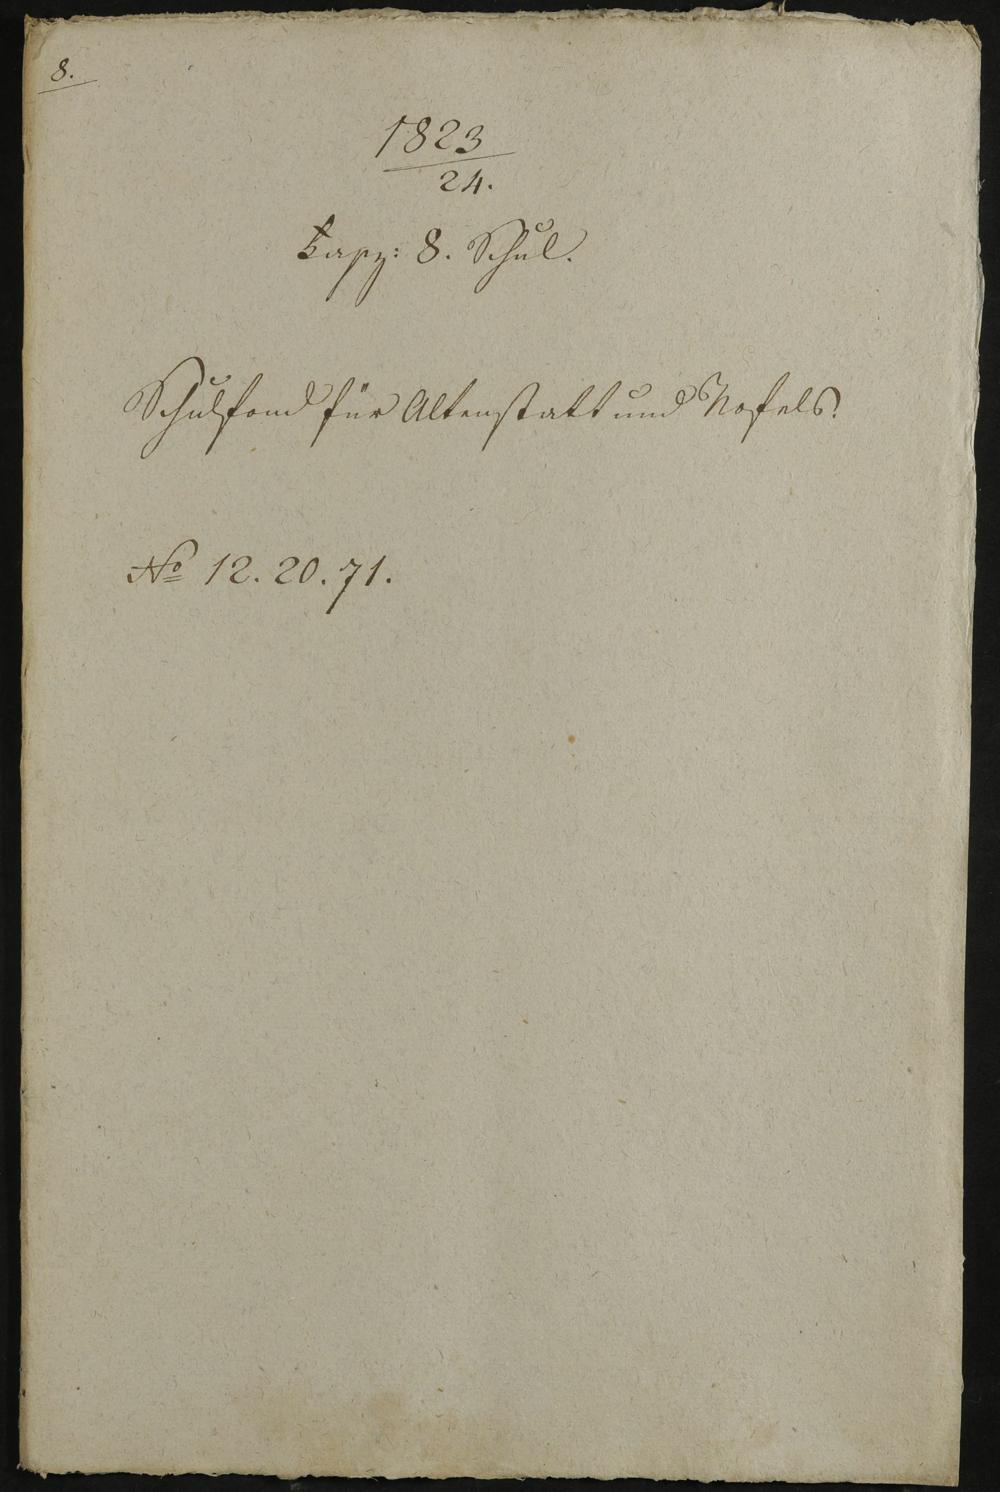 8.
1823
24.
Kapz: 8. Schul.
Schulfond für Altenstatt und Nofels.
No 12. 20. 71.